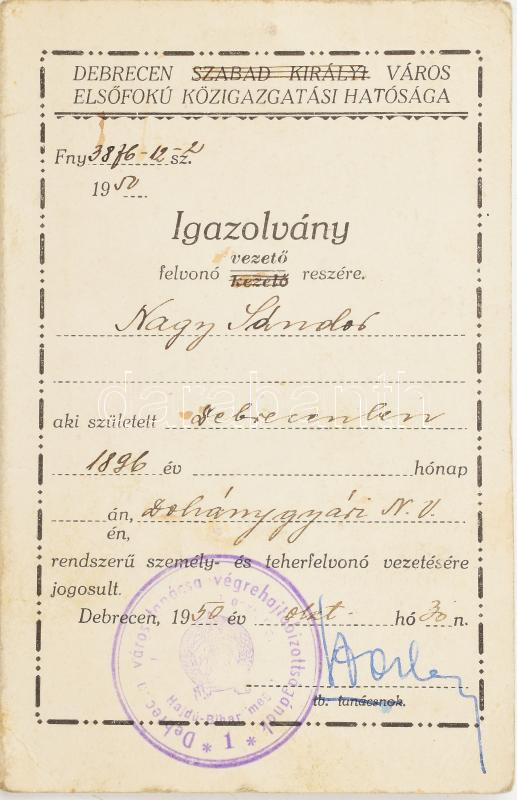 DEBRECEN SZABAD KIRÁLYI VÁROS
ELSŐFOKÚ KÖZIGAZGATÁSI HATÓSÁGA
Fny 3876-12-2 sz.
1950
Igazolvány
vezető
felvonó kezelő reszére.
Nagy Sándor
darabanth
aki született Debrecenben
1896 év hónap
án, Dohánygyári N. V.
én,
rendszerű személy- és teherfelvonó vezetésére
jogosult.
Debrecen, 1950 év okt. hó 30 n.
tb. tanácsnok.
Debrecen város tanácsa végrehajtóbizottságának
Hajdú-Bihar megye
* 1 *